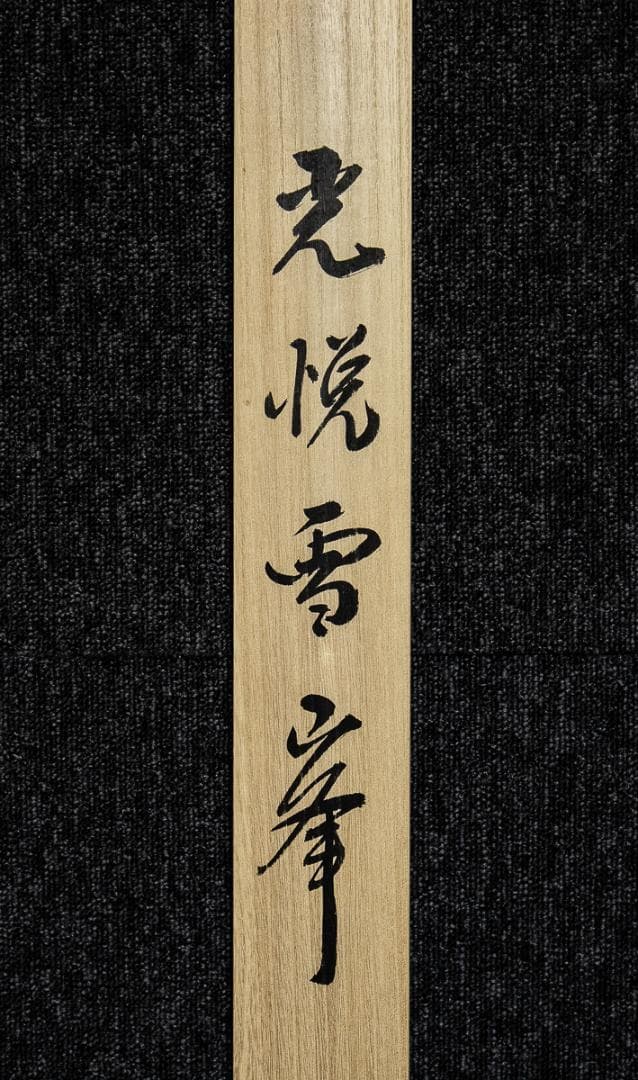 光悦雪峯